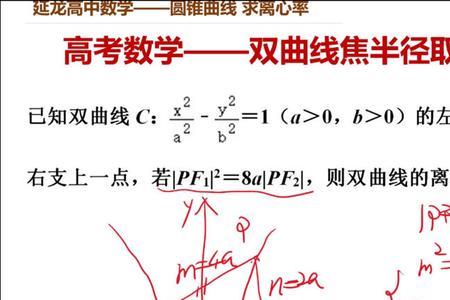 延龙高中数学——圆锥曲线 求离心率
高考数学——双曲线焦半径取
已知双曲线 C：x²/a² - y²/b² =1（a＞0，b＞0）的左
右支上一点，若|PF₁|²＝8a|PF₂|，则双曲线的离
y
P
m=4a
n=2a
m²=